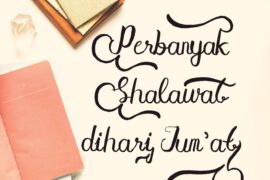 Perbanyak
Shalawat
dihari Jum'at